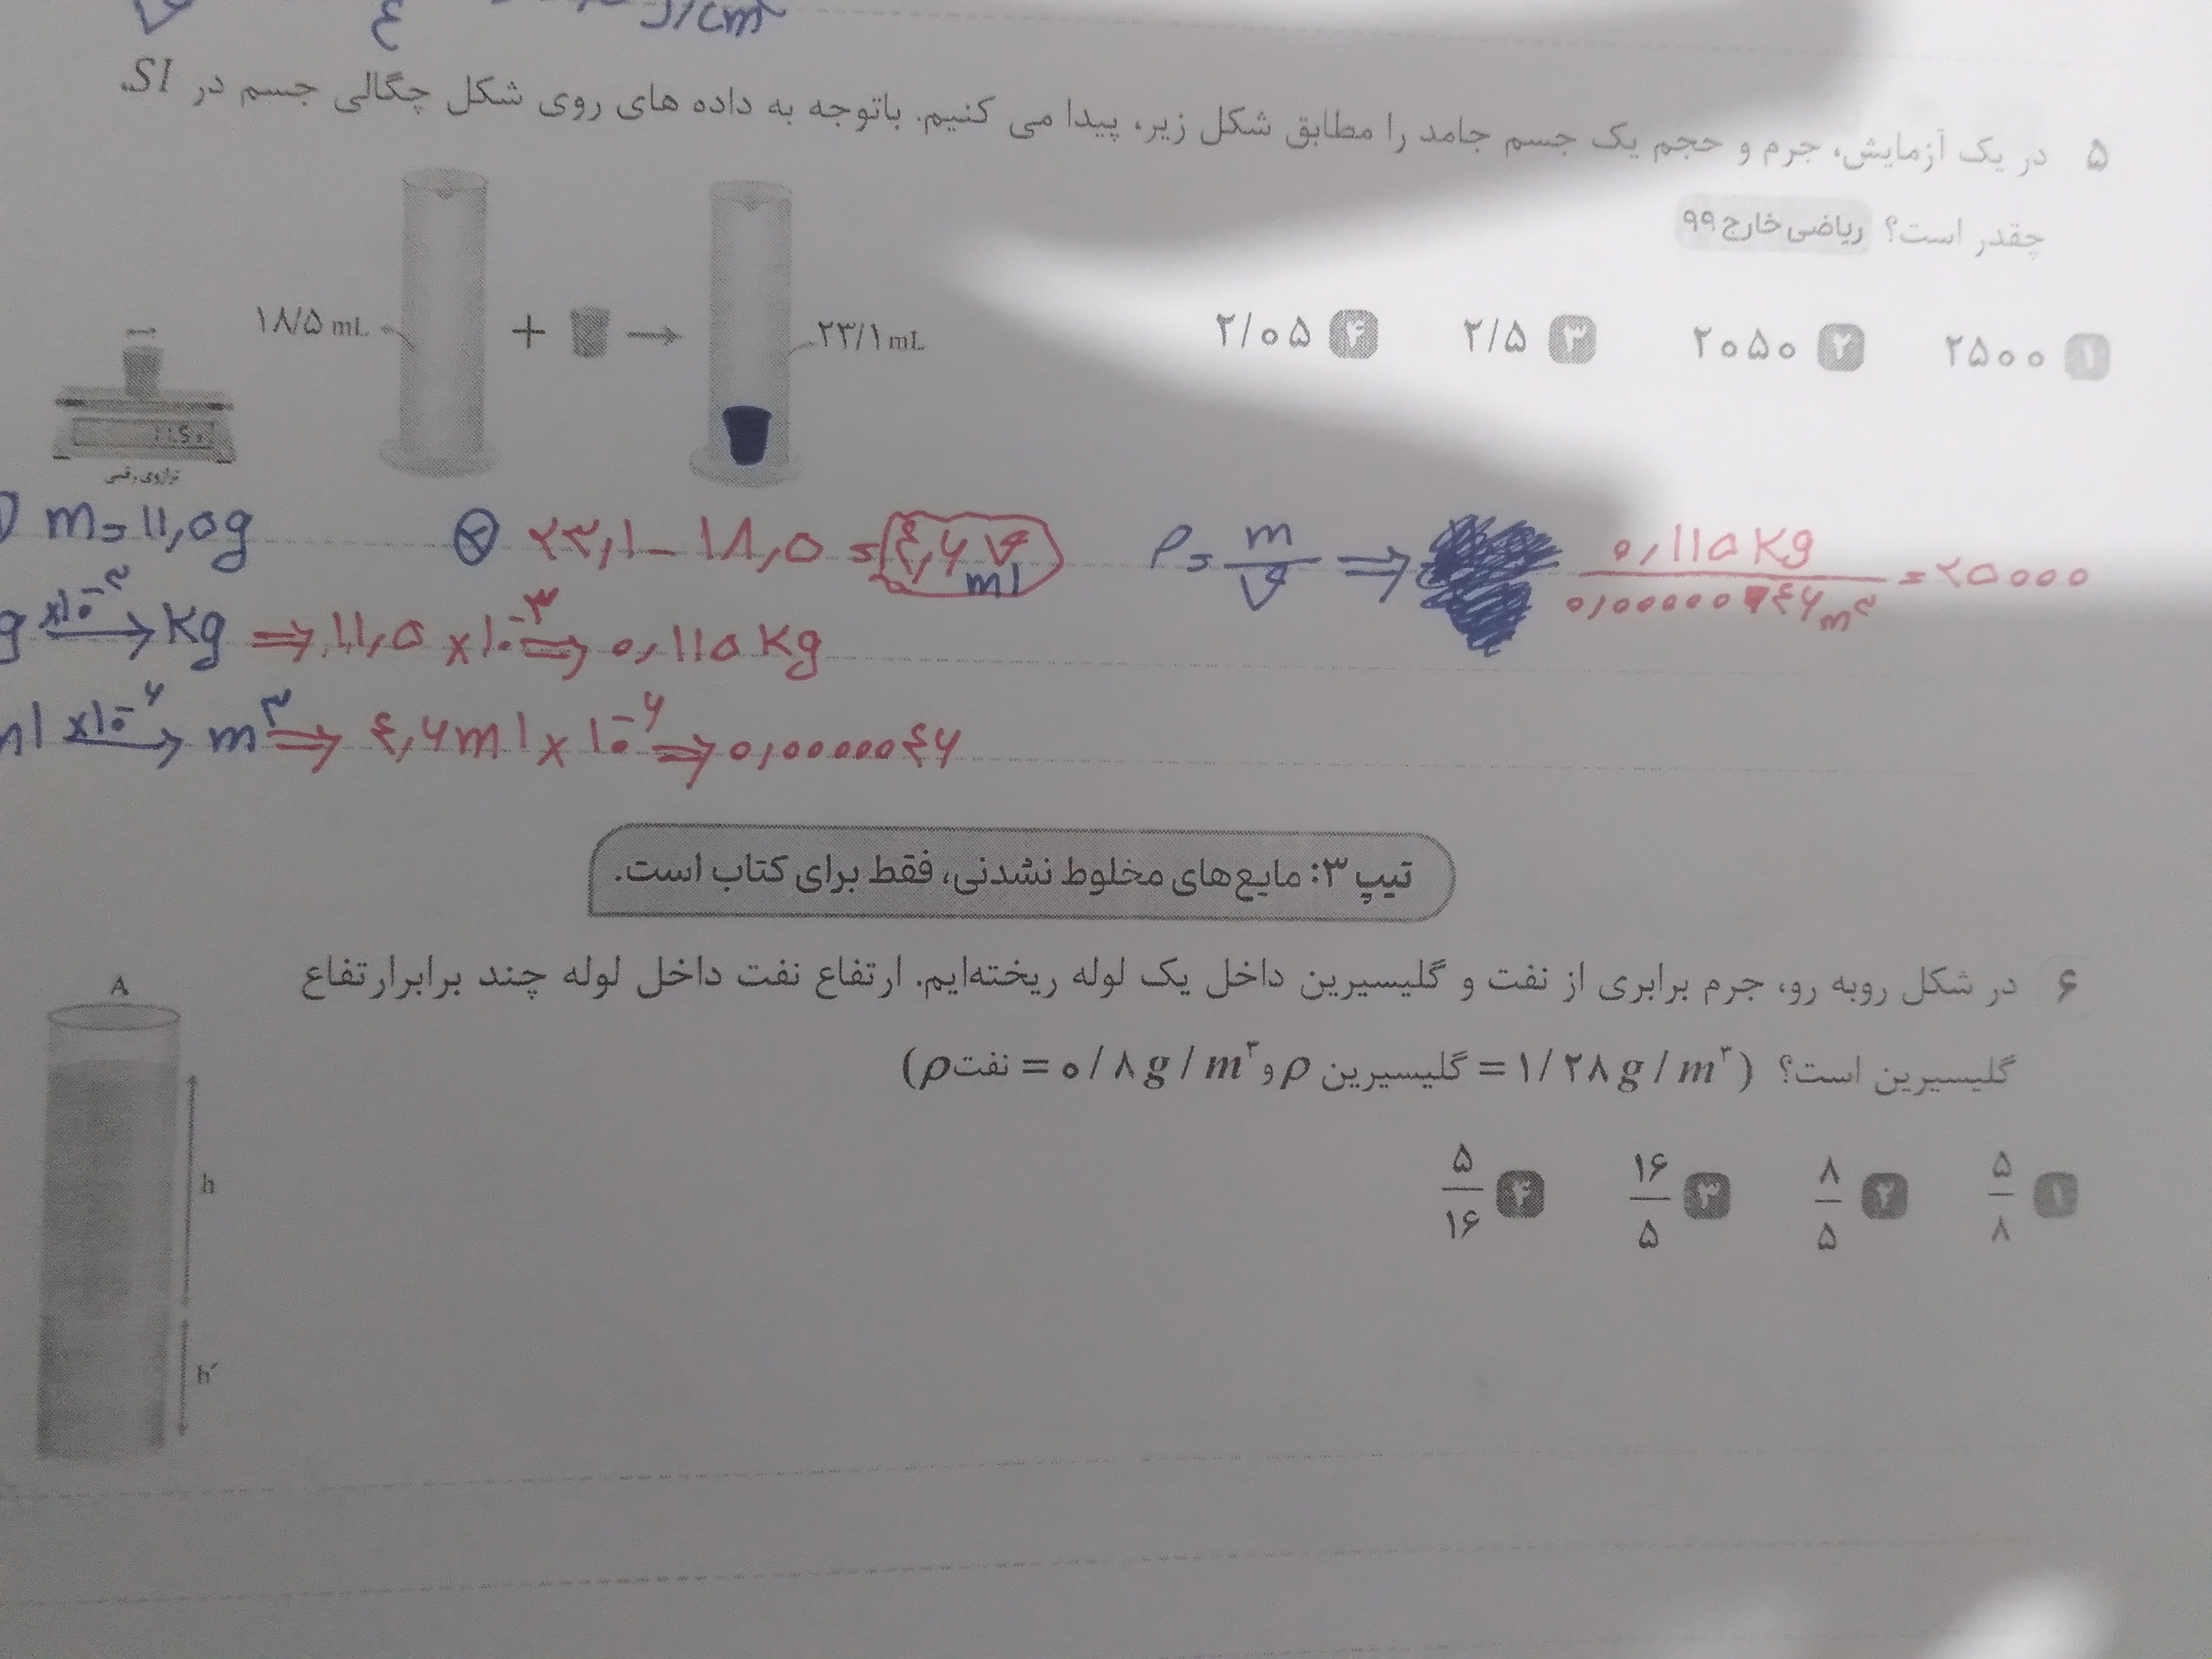 g/cm³
۵ در یک آزمایش، جرم و حجم یک جسم جامد را مطابق شکل زیر، پیدا می کنیم. باتوجه به داده های روی شکل چگالی جسم در SI،
چقدر است؟ ریاضی خارج ۹۹
۱ ۲۵۰۰ ۲ ۲۰۵۰ ۳ ۲/۵ ۴ ۲/۰۵
۱۸/۵ mL + → ۲۳/۱ mL
11.50
ترازوی رقمی
m = ۱۱,۵g ۲۳,۱ - ۱۸,۵ = ۴,۶ ml V ρ = m/V ⇒ ۰,۱۱۵ Kg / ۰,۰۰۰۰۰۴۶ m³ = ۲۵۰۰۰
g ×۱۰⁻³ → Kg ⇒ ۱۱,۵ ×۱۰⁻³ ⇒ ۰,۱۱۵ Kg
ml ×۱۰⁻⁶ → m³ ⇒ ۴,۶ ml × ۱۰⁻⁶ ⇒ ۰,۰۰۰۰۰۴۶
تیپ ۳: مایع‌های مخلوط نشدنی، فقط برای کتاب است.
۶ در شکل روبه رو، جرم برابری از نفت و گلیسیرین داخل یک لوله ریخته‌ایم. ارتفاع نفت داخل لوله چند برابر ارتفاع
گلیسیرین است؟ (۱/۲۸ g / m³ = گلیسیرین ρ و ۰/۸ g / m³ = نفت ρ)
۱ ۵/۸ ۲ ۸/۵ ۳ ۱۶/۵ ۴ ۵/۱۶
A
h
h′